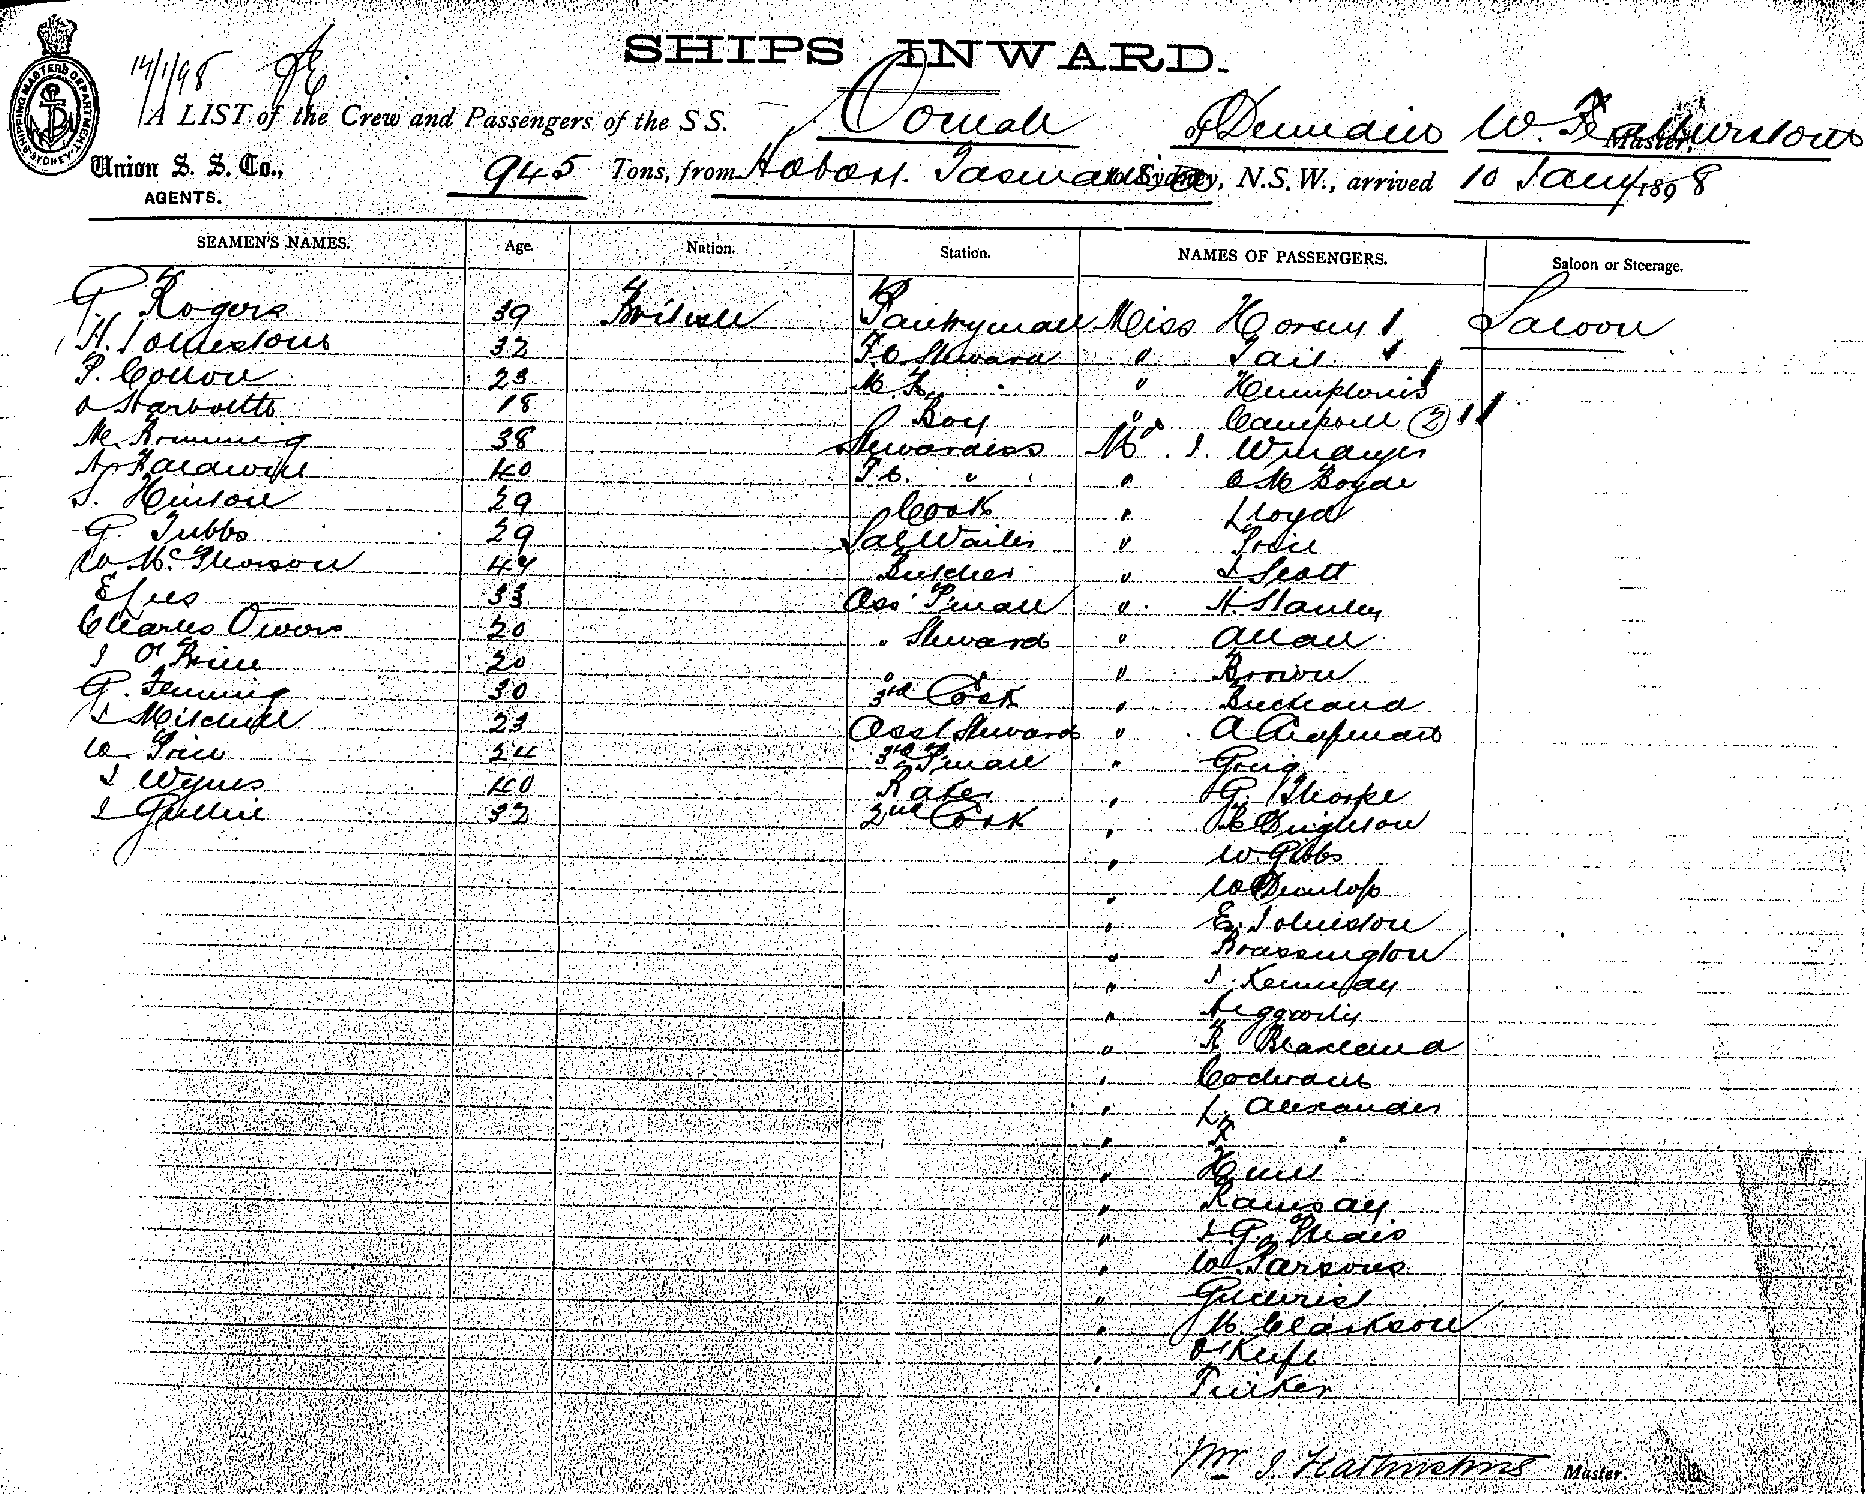 SHIPS INWARD.
14/1/98
SHIPPING MASTERS DEPARTMENT SYDNEY
A LIST of the Crew and Passengers of the S S. Oonah of Dunedin W. Featherstone Master,
Union S. S. Co., 945 Tons, from Hobart Tasmania to Sydney, N.S.W., arrived 10 Jany 1898
AGENTS.
SEAMEN'S NAMES. Age. Nation. Station. NAMES OF PASSENGERS. Saloon or Steerage.
G Rogers 39 British Pantryman Miss Horsey 1 Saloon
H. Johnstone 32 F C Steward " Tait 1
P. Cotton 23 " Humphris 1
18 Boy " Campbell (2) 11
38 Stewardess Mr J.
A Baldwin 40 F.C. " " Boyde
S. Hinton 29 Cook " Lloyd
G. Tubbs 29 Sal Waiter " Price
W McPherson 47 Butcher " J Scott
E Ives 33 Ass P'man " H. Stanley
Charles Owors 20 " Steward " Allan
J O'Brien 20 " " " Brown
G. Fenning 30 3rd Cook " Buckland
J Mitchell 23 Asst Steward " A Chapman
W Price 24 3rd P'man " Greig
J Wynes 40 Baker " G. Thorpe
J 32 2nd Cook " C Brighton
" W. Gibbs
" W Dunlop
" E. Johnston
" Brassington
" J. Kennedy
"
" R Blaxland
" Cochrane
" L. Alexander
" R "
" Hull
" Ramsay
" J G. Thais
" W. Parsons
" Gilchrist
" M Clarkson
" O'Keefe
" Tucker
Wm J. Featherstone Master.